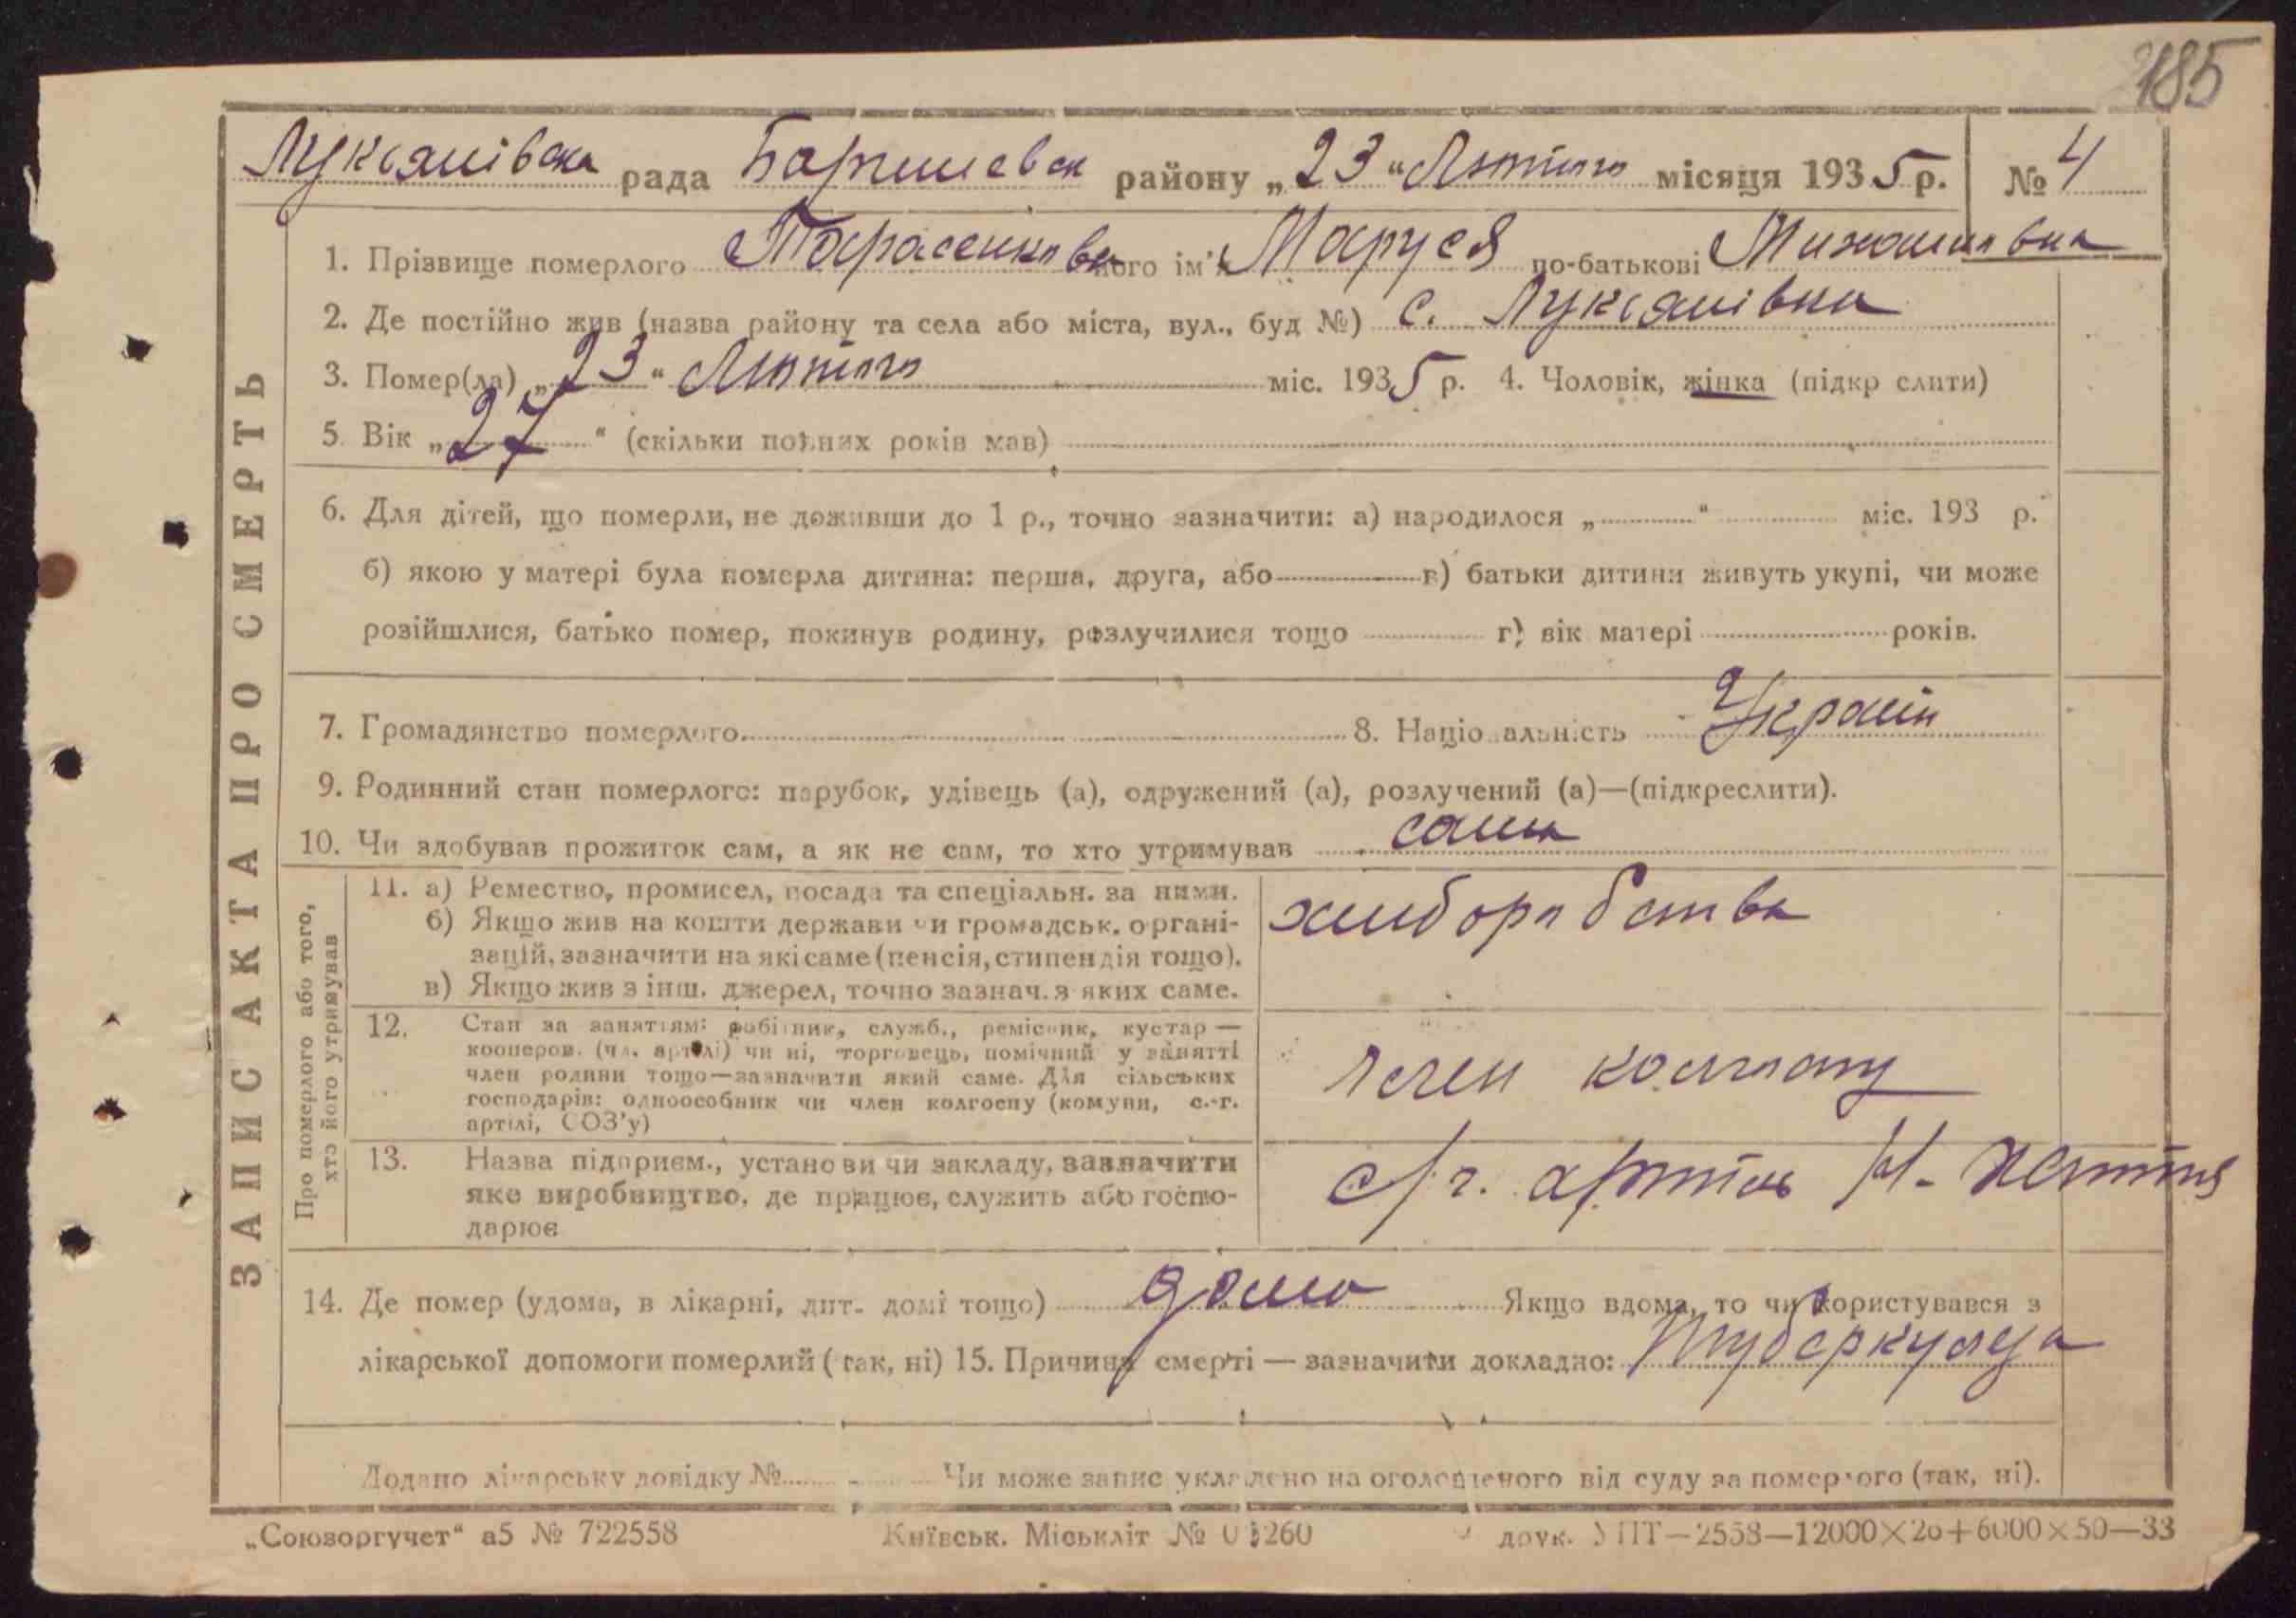 185
Лукьянівська рада Баришевськ району „23“ Лютого місяця 1935 р. № 4
ЗАПИС АКТА ПРО СМЕРТЬ
1. Прізвище померлого Тарасенкова його ім'я Маруся по-батькові Михайловна
2. Де постійно жив (назва району та села або міста, вул., буд №) с. Лукьянівка
3. Помер(ла) „23“ Лютого міс. 1935 р. 4. Чоловік, жінка (підкр слити)
5. Вік „27“ (скільки повних років мав)
6. Для дітей, що померли, не доживши до 1 р., точно зазначити: а) народилося „ “ міс. 193 р.
б) якою у матері була померла дитина: перша, друга, або в) батьки дитини живуть укупі, чи може
розійшлися, батько помер, покинув родину, розлучилися тощо г) вік матері років.
7. Громадянство померлого. 8. Національність Украин
9. Родинний стан померлого: парубок, удівець (а), одружений (а), розлучений (а)—(підкреслити).
10. Чи здобував прожиток сам, а як не сам, то хто утримував сама
Про померлого або того,
хто його утримував
11. а) Ремество, промисел, посада та спеціальн. за ними.
б) Якщо жив на кошти держави чи громадськ. органі-
зацій, зазначити на які саме (пенсія, стипендія тощо).
в) Якщо жив з інш. джерел, точно зазнач. з яких саме.
хлиборобства
12. Стан за заняттям: робітник, служб., ремісник, кустар—
кооперов. (чл. артілі) чи ні, торговець, помічний у занятті
член родини тощо—зазначити який саме. Для сільських
господарів: одноособник чи член колгоспу (комуни, с.-г.
артілі, СОЗ'у)
член колгоспу
13. Назва підприєм., установи чи закладу, зазначити
яке виробництво, де працює, служить або госпо-
дарює
с/г. артіль Н. життя
14. Де помер (удома, в лікарні, дит. домі тощо) дома Якщо вдома, то чи користувався з
лікарської допомоги померлий (так, ні) 15. Причина смерті — зазначити докладно: Туберкульоза
Додано лікарську довідку № Чи може запис укладено на оголошеного від суду за померлого (так, ні).
„Союзоргучет“ а5 № 722558 Київськ. Міськліт № друк. УПТ—2558—12000×20+6000×50—33